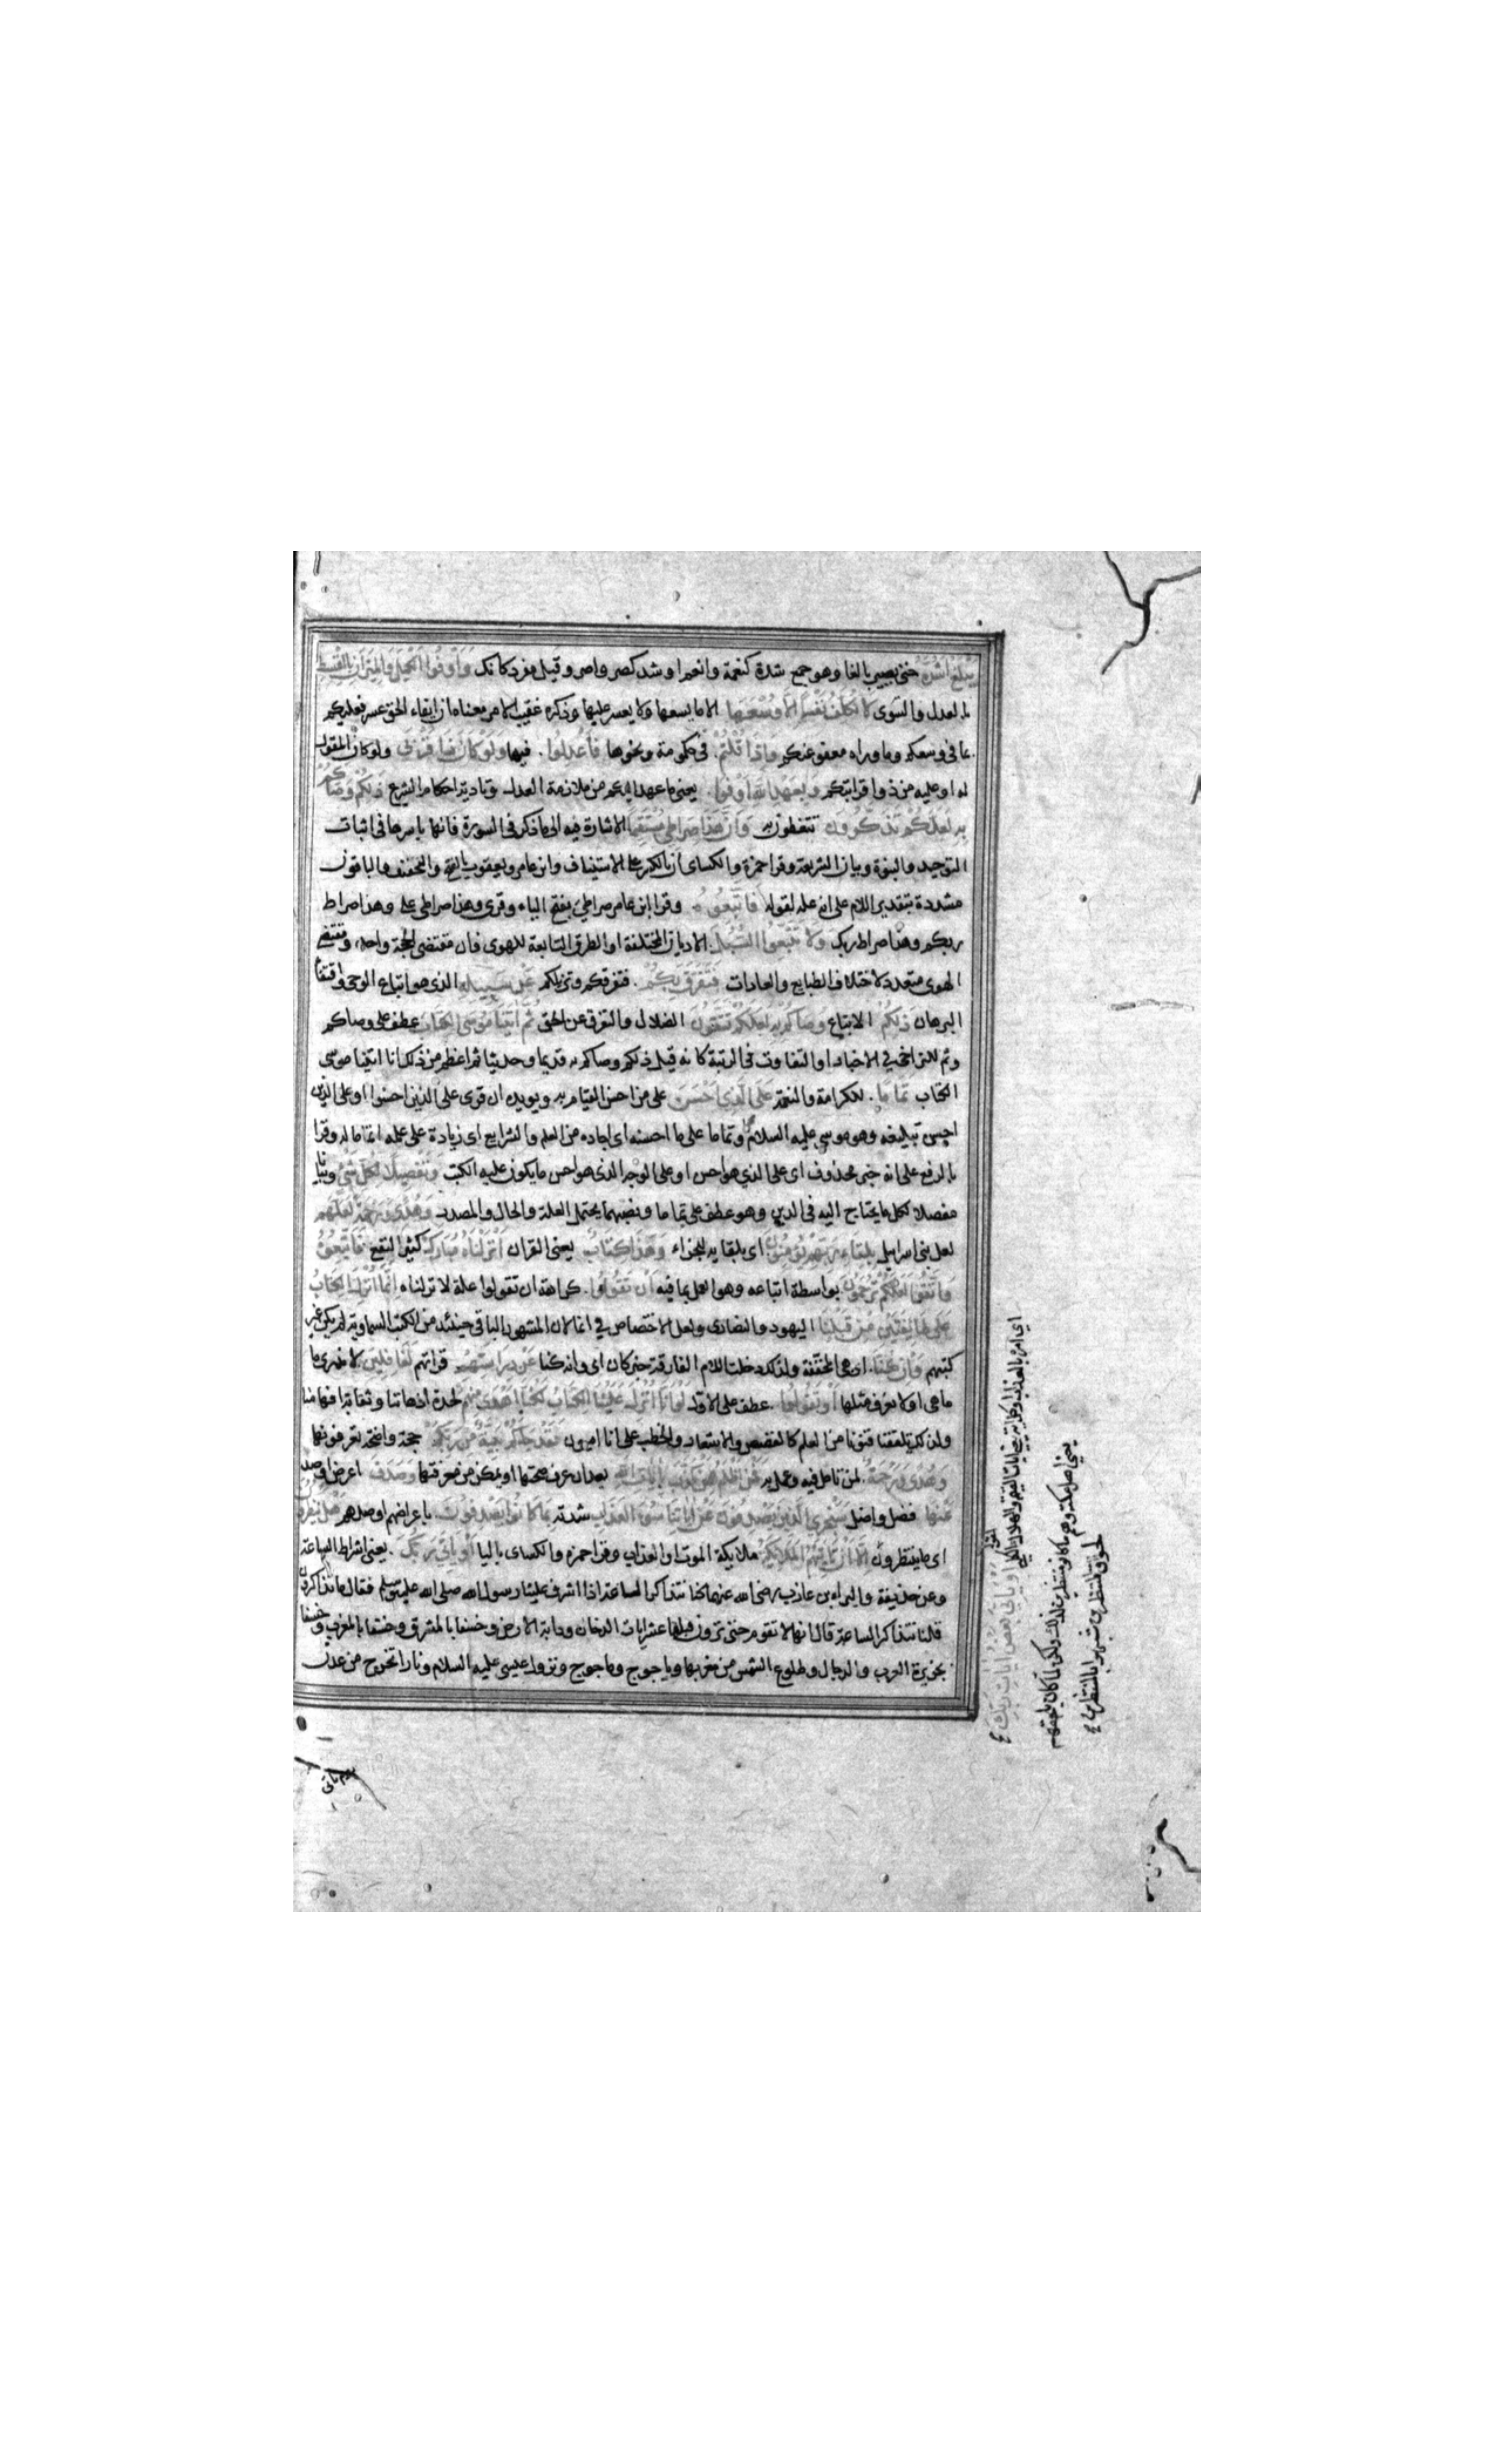 يَبْلُغَ أَشُدَّهُ حتى يصير بالغا وهو جمع شدة كنعمة وانعم او شد كصر واصر وقيل مفرد كانك وَأَوْفُوا الْكَيْلَ وَالْمِيزَانَ بِالْقِسْطِ
بالعدل والتسوى لَا نُكَلِّفُ نَفْسًا إِلَّا وُسْعَهَا الا ما يسعها ولا يعسر عليها وذكره عقيب الامر معناه ان ايفاء الحق عسر فعليكم
بما فى وسعكم وما وراه معفو عنكم وَإِذَا قُلْتُمْ فى حكومة ونحوها فَاعْدِلُوا فيها وَلَوْ كَانَ ذَا قُرْبَى ولو كان المقول
له او عليه من ذوا قرابتكم وَبِعَهْدِ اللَّهِ أَوْفُوا يعنى ما عهد اليكم من ملازمة العدل وتادية احكام الشرع ذَلِكُمْ وَصَّاكُمْ
بِهِ لَعَلَّكُمْ تَذَكَّرُونَ تتعظون به وَأَنَّ هَذَا صِرَاطِي مُسْتَقِيمًا الاشارة فيه الى ما ذكر فى السورة فانها باسرها فى اثبات
التوحيد والنبوة وبيان الشريعة وقرا حمزة والكسائى ان بالكسر على الاستيناف وابن عامر ويعقوب بالفتح والتخفيف والباقون
مشددة بتقدير اللام على انه علة لقوله فَاتَّبِعُوهُ وقرا ابن عامر صراطي بفتح الياء وقرى وهذا صراطى على وهذا صراط
ربكم وهذا صراط ربك وَلَا تَتَّبِعُوا السُّبُلَ الاديان المختلفة او الطرق التابعة للهوى فان مقتضى الحجة واحد ومقتضى
الهوى متعدد لاختلاف الطبايع والعادات فَتَفَرَّقَ بِكُمْ فتفرقكم وتزيلكم عَنْ سَبِيلِهِ الذى هو اتباع الوحى واقتفا
البرهان ذَلِكُمْ الاتباع وَصَّاكُمْ بِهِ لَعَلَّكُمْ تَتَّقُونَ الضلال والتفرق عن الحق ثُمَّ آتَيْنَا مُوسَى الْكِتَابَ عطف على وصاكم
وثم للتراخى فى الاخبار او التفاوت فى الرتبة كانه قيل ذلكم وصاكم به قديما وحديثا ثم اعظم من ذلك انا اتينا موسى
الكتاب تَمَامًا للكرامة والنعمة عَلَى الَّذِي أَحْسَنَ على من احسن القيام به ويويده ان قرى على الذين احسنوا او على الذى
احسن تبليغه وهو موسى عليه السلام او تماما على ما احسنه اى اجاده من العلم والشرايع اى زيادة على علمه اتماما له وقرا
بالرفع على انه خبر محذوف اى على الذي هو احسن او على الوجه الذى هو احسن ما يكون عليه الكتب وَتَفْصِيلًا لِكُلِّ شَيْءٍ وبيانا
مفصلا لكل ما يحتاج اليه فى الدين وهو عطف على تماما ونصبهما يحتمل العلة والحال والمصدر وَهُدًى وَرَحْمَةً لَعَلَّهُمْ
لعل بنى اسرايل بِلِقَاءِ رَبِّهِمْ يُؤْمِنُونَ اى بلقايه للجزاء وَهَذَا كِتَابٌ يعنى القران أَنْزَلْنَاهُ مُبَارَكٌ كثير النفع فَاتَّبِعُوهُ
وَاتَّقُوا لَعَلَّكُمْ تُرْحَمُونَ بواسطة اتباعه وهو العمل بما فيه أَنْ تَقُولُوا كراهة ان تقولوا علة لانزلناه إِنَّمَا أُنْزِلَ الْكِتَابُ
عَلَى طَائِفَتَيْنِ مِنْ قَبْلِنَا اليهود والنصارى ولعل الاختصاص فى انما لان المشهور الباقى حينئذ من الكتب السماوية لم يكن غير
كتبهم وَإِنْ كُنَّا ان هى المخففة ولذلك دخلت اللام الفارقة خبر كان اى وانه كنا عَنْ دِرَاسَتِهِمْ قراتهم لَغَافِلِينَ لا ندرى ما
ما هى او لا نعرف مثلها أَوْ تَقُولُوا عطف على الاول لَوْ أَنَّا أُنْزِلَ عَلَيْنَا الْكِتَابُ لَكُنَّا أَهْدَى مِنْهُمْ لحدة اذهاننا وثقابة افهامنا
ولذلك تلقفنا فنونا من العلم كالقصص والاشعار والخطب على انا اميون فَقَدْ جَاءَكُمْ بَيِّنَةٌ مِنْ رَبِّكُمْ حجة واضحة تعرفونها
وَهُدًى وَرَحْمَةٌ لمن تامل فيه وعمل به فَمَنْ أَظْلَمُ مِمَّنْ كَذَّبَ بِآيَاتِ اللَّهِ بعد ان عرف صحتها او تمكن من معرفتها وَصَدَفَ اعرض او صد
عَنْهَا فضل واضل سَنَجْزِي الَّذِينَ يَصْدِفُونَ عَنْ آيَاتِنَا سُوءَ الْعَذَابِ شدته بِمَا كَانُوا يَصْدِفُونَ باعراضهم او صدهم هَلْ يَنْظُرُونَ
اى ما ينتظرون إِلَّا أَنْ تَأْتِيَهُمُ الْمَلَائِكَةُ ملايكة الموت او العذاب وقرا حمزه والكسائى باليا أَوْ يَأْتِيَ رَبُّكَ يعنى اشراط الساعة
وعن حذيفة والبراء بن عازب رضى الله عنهما كنا نتذاكر الساعة اذا اشرف علينا رسول الله صلى الله عليه وسلم فقال ما تذاكرون
قلنا نتذاكر الساعة قال انها لا تقوم حتى تروا قبلها عشر ايات الدخان ودابة الارض وخسفا بالمشرق وخسفا بالمغرب وخسفا
بجزيرة العرب والدجال وطلوع الشمس من مغربها وياجوج وماجوج ونزول عيسى عليه السلام ونارا تخرج من عدن
أَوْ يَأْتِيَ بَعْضُ آيَاتِ رَبِّكَ
اى امره بالعذاب او كل اية يعنى ايات القيمة والهلاك الكلى
يعنى اهل مكة وهم ما كانوا منتظرين لذلك ولكن لما كان يلحقهم
لحوق المنتظر شبهوا بالمنتظرين
يوم ياتى